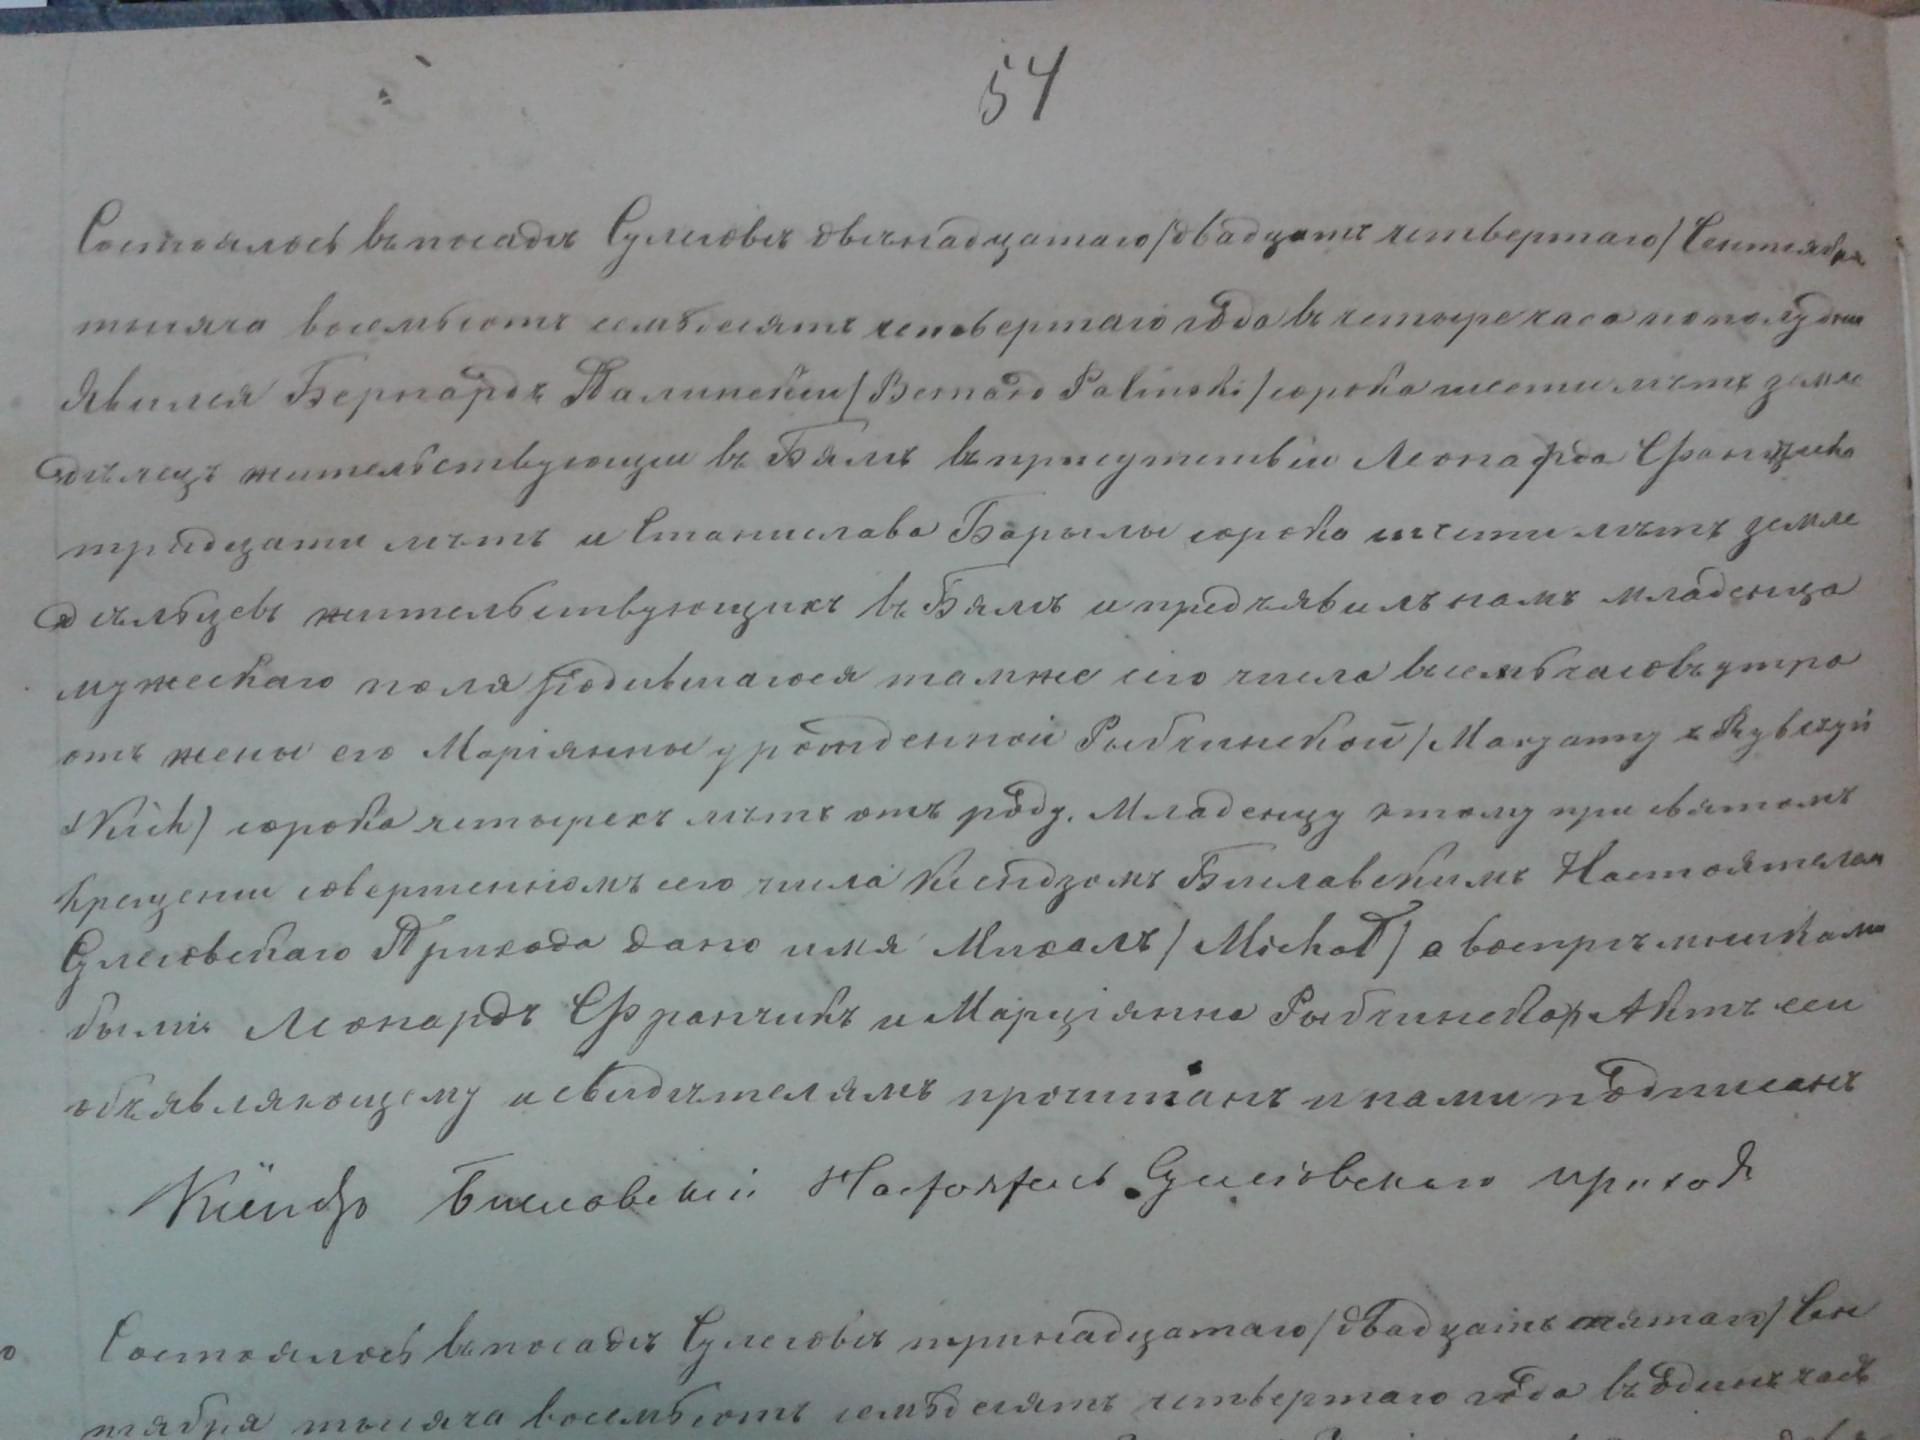 54
Состоялось въ посадѣ Сулеіовѣ двѣнадцатаго/двадцать четвертаго/Сентября
тысяча восемьсотъ семьдесятъ четвертаго года въ четыре часа по полудни
Явился Бернардъ Палинскій/Bernard Palinski/сорока шести лѣтъ земле
дѣлецъ жительствующій въ Бялѣ въ присутствіи Леонарда Францика
тридцати лѣтъ и Станислава Барылы сорока шести лѣтъ земле
дѣльцевъ жительствующихъ въ Бялѣ и предъявилъ намъ младенца
мужескаго пола родившагося тамже сего числа въ семь часовъ утра
отъ жены его Маріянны урожденной Рыбчинской/Maryanny z
skich) сорока четырехъ лѣтъ отъ роду. Младенцу этому при святомъ
крещении совершенномъ сего числа Ксендзомъ Биславскимъ Настоятелемъ
Сулеіовскаго Прихода дано имя Михалъ/Michał/а воспріемниками
были Леонардъ Францикъ и Марціянна Рыбчинская. Актъ сей
объявляющему и свидѣтелямъ прочитанъ и нами подписанъ
Ксендзъ Биславскій Настоятель Сулеіовскаго прихода
Состоялось въ посадѣ Сулеіовѣ тринадцатаго/двадцать пятаго/Сен
тября тысяча восемьсотъ семьдесятъ четвертаго года въ одинъ часъ